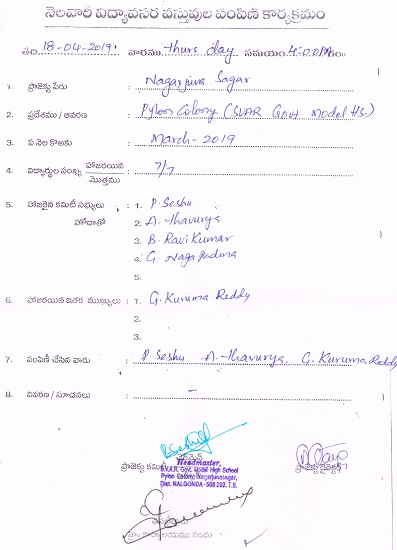 నెలవారీ విద్యావసర వస్తువుల పంపిణి కార్యక్రమం
తేది 18-04-2019 వారము thurs day సమయం 4:00PM
1. ప్రాజెక్టు పేరు : Nagarjuna Sagar
2. ప్రదేశము / ఆవరణ : Pylon Colony (SVAR Govt Model H/S.)
3. ఏ నెల కొఱకు : March - 2019
4. విద్యార్థుల సంఖ్య హాజరయిన / మొత్తము : 7/7
5. హాజరైన కమిటీ సభ్యులు : 1. P. Seshu
హోదాతో 2. A. thavurya
3. B. Ravi Kumar
4. G. Naga Padma
5.
6. హాజరయిన ఇతర ముఖ్యులు : 1. G. Kuruma Reddy
2.
3.
7. పంపిణి చేసిన వారు : P. Seshu A. thavurya. G. Kuruma Reddy
8. వివరణ / సూచనలు : -
ప్రాజెక్టు కమిటీ ఛైర్మన్ ప్రాజెక్టు డైరెక్టర్
Headmaster,
S.V.A.R. Govt. Model High School
Pylon Colony, Nagarjunasagar,
Dist. NALGONDA - 508 203. T.S.